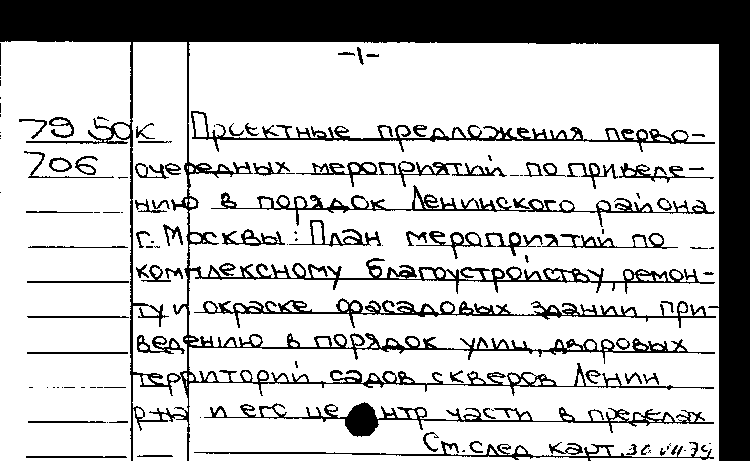 -1-
79 50к Проектные предложения перво-
706 очередных мероприятий по приведе-
нию в порядок Ленинского района
г. Москвы: План мероприятий по
комплексному благоустройству, ремон-
ту и окраске фасадовых зданий, при-
ведению в порядок улиц, дворовых
территорий, садов, скверов Ленин.
р-на и его центр части в пределах
См. след карт.